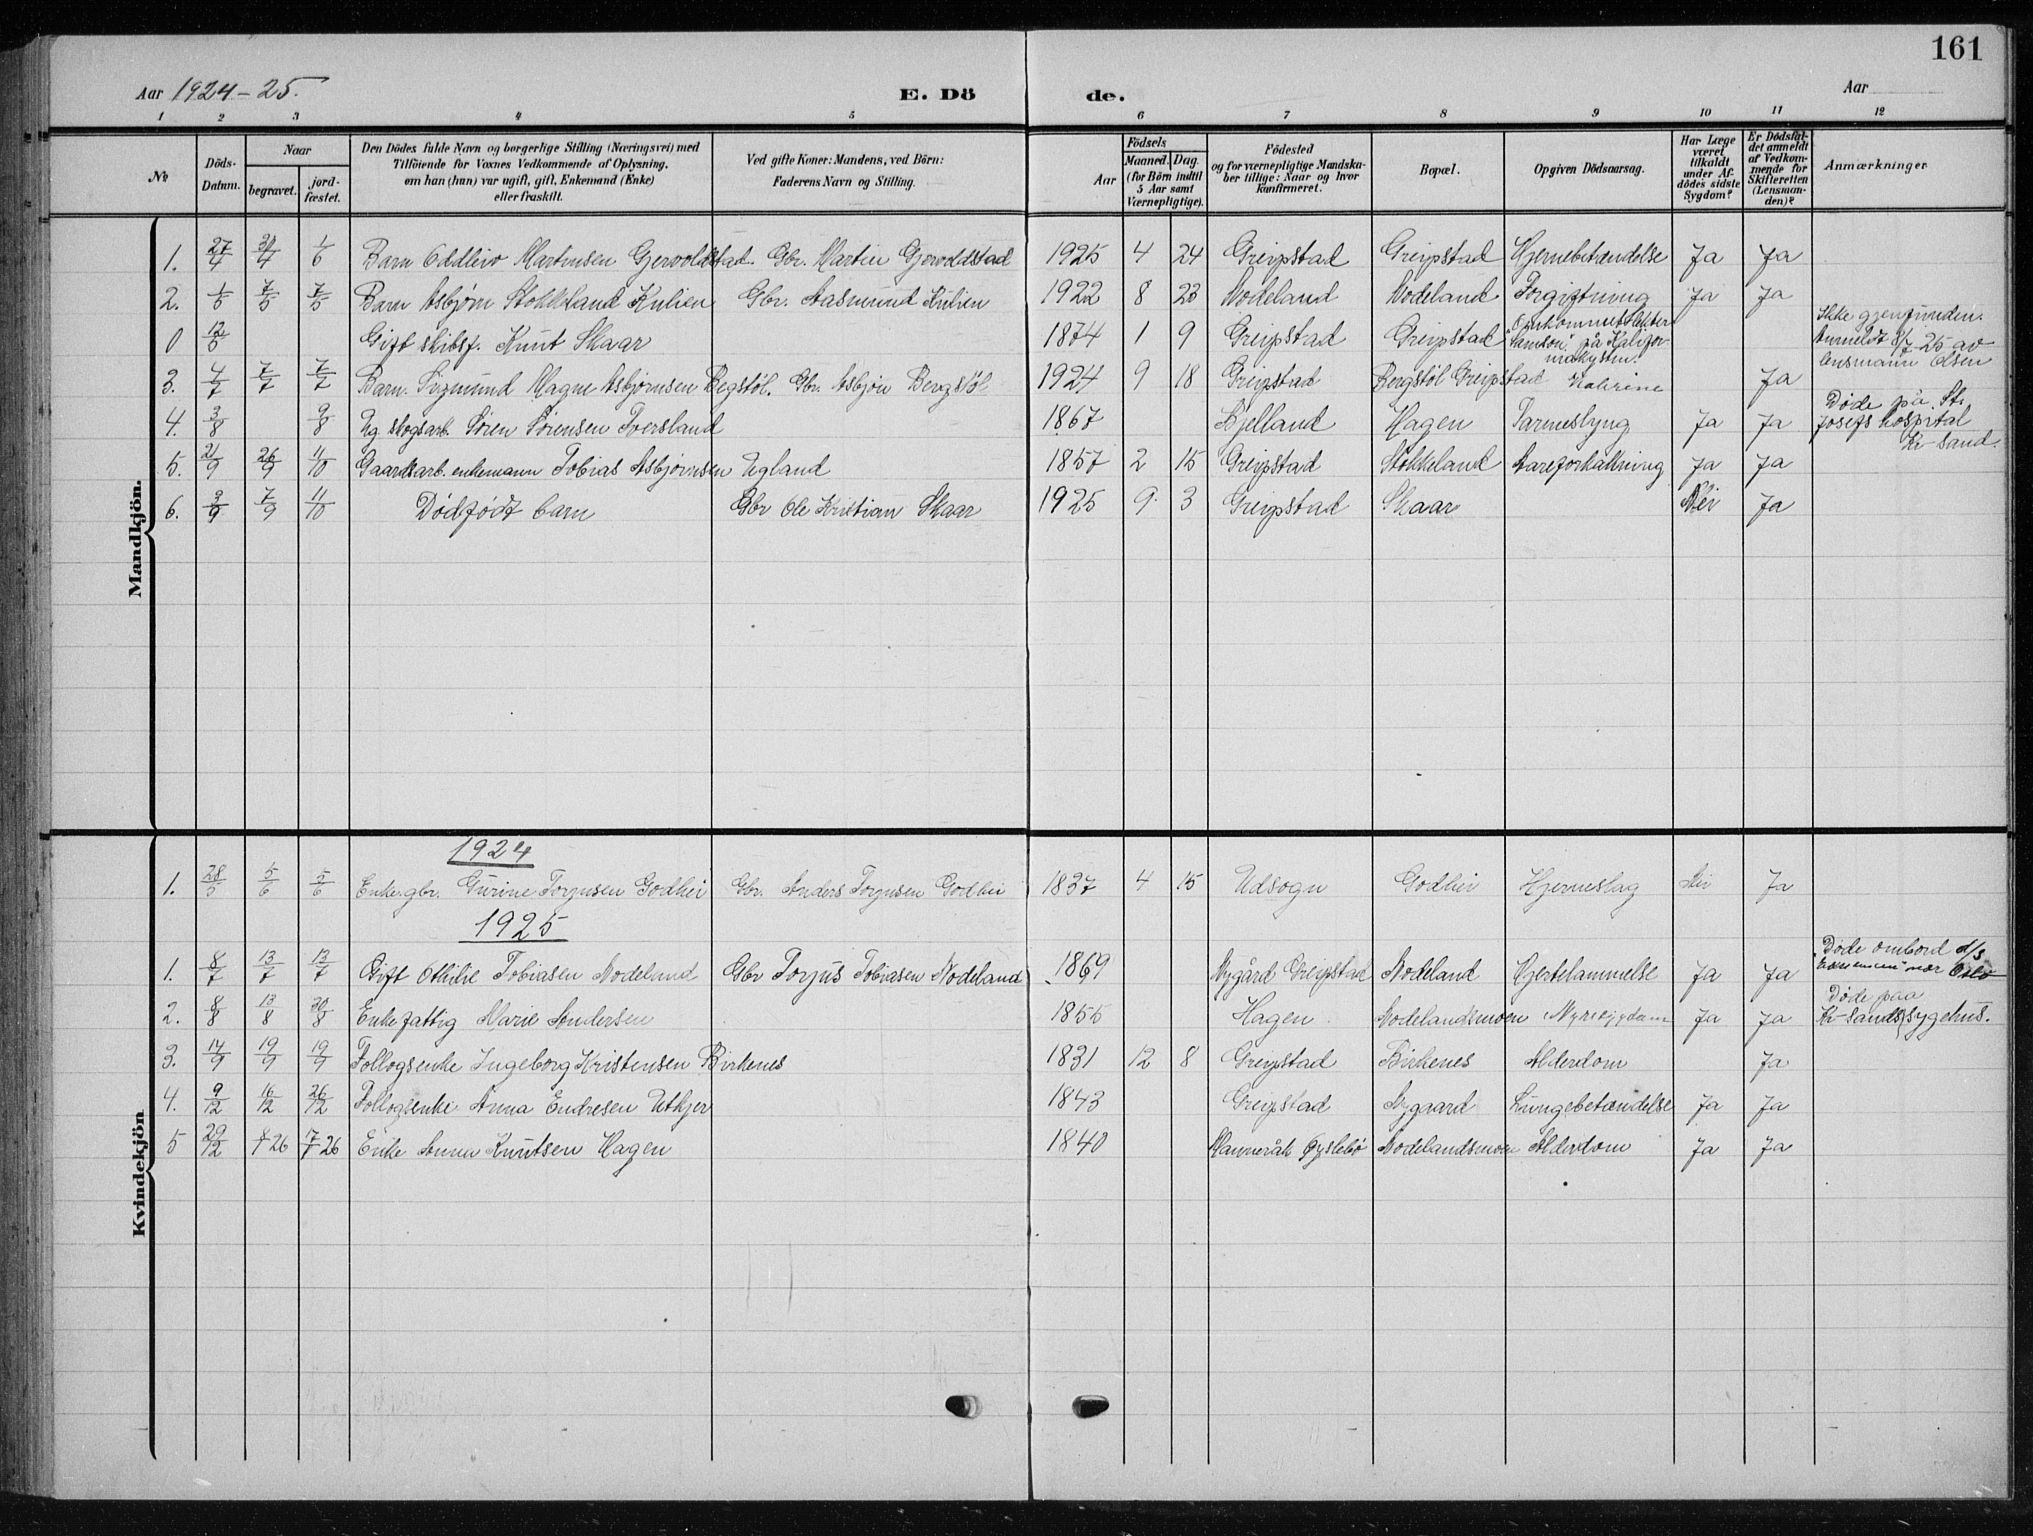 161
Aar 1924-25.
E. Dö
de.
Aar
1 2 3 4 5 6 7 8 9 10 11 12
№
Döds-Datum.
Naar
begravet.
jord-fæstet.
Den Dödes fulde Navn og borgerlige Stilling (Næringsvei) med
Tilföiende for Voxnes Vedkommende af Oplysning,
om han (hun) var ugift, gift, Enkemand (Enke)
eller fraskilt.
Ved gifte Koner: Mandens, ved Börn:
Faderens Navn og Stilling.
Födsels
Aar
Maaned. Dag.
(for Börn indtil
5 Aar samt
Værnepligtige).
Födested
og for værnepligtige Mandska-
ber tillige: Naar og hvor
Konfirmeret.
Bopæl.
Opgiven Dödsaarsag.
Har Læge
været
tilkaldt
under Af-
dödes sidste
Sygdom?
Er Dödsfal-
det anmeldt
af Vedkom-
mende for
Skifteretten
(Lensman-
den)?
Anmærkninger
Mandkjön.
1. 27/4 30/4 1/6 Barn Oddleiv Martinsen Gjervoldstad. Gbr. Martin Gjervoldstad 1925 4 24 Greipstad Greipstad Hjernebetændelse Ja Ja
2. 1/5 7/5 7/5 Barn Asbjørn Stokkeland Kulien Gbr. Aasmund Kulien 1922 8 23 Nodeland Nodeland Forgiftning Ja Ja
0 12/5 Gift skibsf. Knut Skaar 1874 1 9 Greipstad Greipstad Omkommet slepper "Samson" på Kalifor-niakysten. Ikke gjenfunden. Anmeldt 8/7 25 av lensmann Olsen
3. 4/7 7/7 7/7 Barn Sigmund Magne Asbjørnsen Begstøl. Gbr. Asbjørn Bergstøl 1924 9 18 Greipstad Bergstøl Greipstad Ja
4. 3/8 9/8 Ug. skogsarb. Søren Sørensen Tversland 1867 Bjelland Hagen Tarmeslyng Ja Ja Døde på St. Josefs hospital Kr-sand.
5. 21/9 26/9 11/10 Gaardsarb. enkemann Tobias Asbjørnsen Ugland 1857 2 15 Greipstad Stokkeland Aareforkalkning Ja Ja
6. 3/9 7/9 11/10 Dødfødt barn Gbr Ole Kristian Skaar 1925 9 3 Greipstad Skaar Nei Ja
Kvindekjön
1924
1. 28/5 5/6 5/6 Enke gbr. Gurine Torjusen Godhei Gbr. Anders Torjusen Godhei 1837 4 15 Udsogn Godhei Hjerneslag Nei Ja
1925
1. 8/7 13/7 13/7 Gift Othilie Tobiasen Nodeland Gbr Torjus Tobiasen Nodeland 1869 Nygård Greipstad Nodeland Hjertelammelse Ja Ja Døde ombord d/s nær Oslo
2. 8/8 13/8 30/8 Enke fattig Marie Andersen 1855 Hagen Nodelandsmoen Nyresygdom Ja Ja Døde paa Kr-sands sygehus.
3. 14/9 19/9 19/9 Follogsenke Ingeborg Kristensen Birkenes 1831 12 8 Greipstad Birkenes Alderdom Ja
4. 9/12 16/12 26/12 Follogsenke Anna Endresen Utkjer 1843 Greipstad Nygaard Lungebetændelse Ja Ja
5 29/12 8/1 26 17/1 26 Enke Anna Knutsen Hagen 1840 Manneråk Øyslebø Nodelandsmoen Alderdom Ja Ja